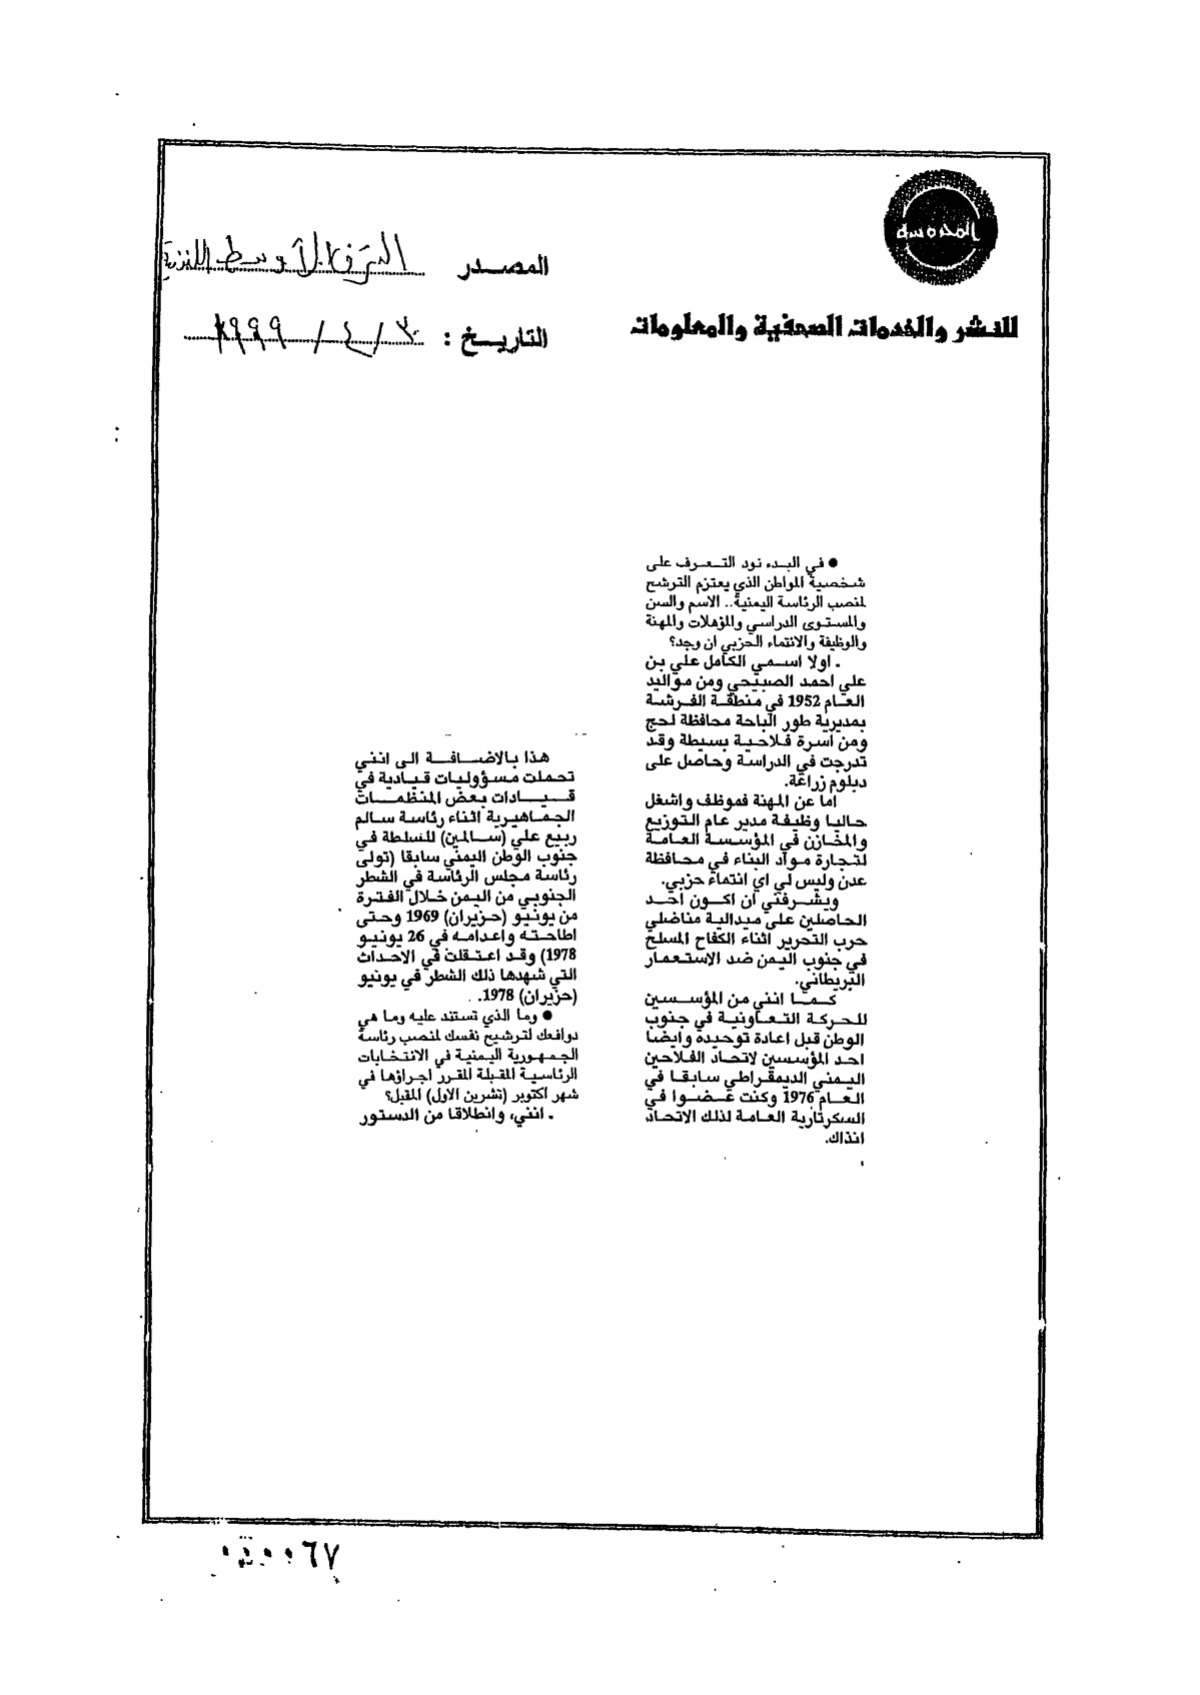 المحروسة
للنشر والخدمات الصحفية والمعلومات
المصدر الشرق الأوسط اللندنية
التاريخ : ٣٠ / ٤ / ١٩٩٩
● في البدء نود التعرف على
شخصية المواطن الذي يعتزم الترشح
لمنصب الرئاسة اليمنية.. الاسم والسن
والمستوى الدراسي والمؤهلات والمهنة
والوظيفة والانتماء الحزبي ان وجد؟
ـ اولا اسمي الكامل علي بن
علي احمد الصبيحي ومن مواليد
العام 1952 في منطقة الفرشة
بمديرية طور الباحة محافظة لحج
ومن اسرة فلاحية بسيطة وقد
تدرجت في الدراسة وحاصل على
دبلوم زراعة.
اما عن المهنة فموظف واشغل
حاليا وظيفة مدير عام التوزيع
والمخازن في المؤسسة العامة
لتجارة مواد البناء في محافظة
عدن وليس لي اي انتماء حزبي.
ويشرفني ان اكون احد
الحاصلين على ميدالية مناضلي
حرب التحرير اثناء الكفاح المسلح
في جنوب اليمن ضد الاستعمار
البريطاني.
كما انني من المؤسسين
للحركة التعاونية في جنوب
الوطن قبل اعادة توحيده وايضا
احد المؤسسين لاتحاد الفلاحين
اليمني الديمقراطي سابقا في
العام 1976 وكنت عضوا في
السكرتارية العامة لذلك الاتحاد
انذاك.
هذا بالاضافة الى انني
تحملت مسؤوليات قيادية في
قيادات بعض المنظمات
الجماهيرية اثناء رئاسة سالم
ربيع علي (سالمين) للسلطة في
جنوب الوطن اليمني سابقا (تولى
رئاسة مجلس الرئاسة في الشطر
الجنوبي من اليمن خلال الفترة
من يونيو (حزيران) 1969 وحتى
اطاحته واعدامه في 26 يونيو
1978) وقد اعتقلت في الاحداث
التي شهدها ذلك الشطر في يونيو
(حزيران) 1978.
● وما الذي تستند عليه وما هي
دوافعك لترشيح نفسك لمنصب رئاسة
الجمهورية اليمنية في الانتخابات
الرئاسية المقبلة المقرر اجراؤها في
شهر اكتوبر (تشرين الاول) المقبل؟
ـ انني، وانطلاقا من الدستور